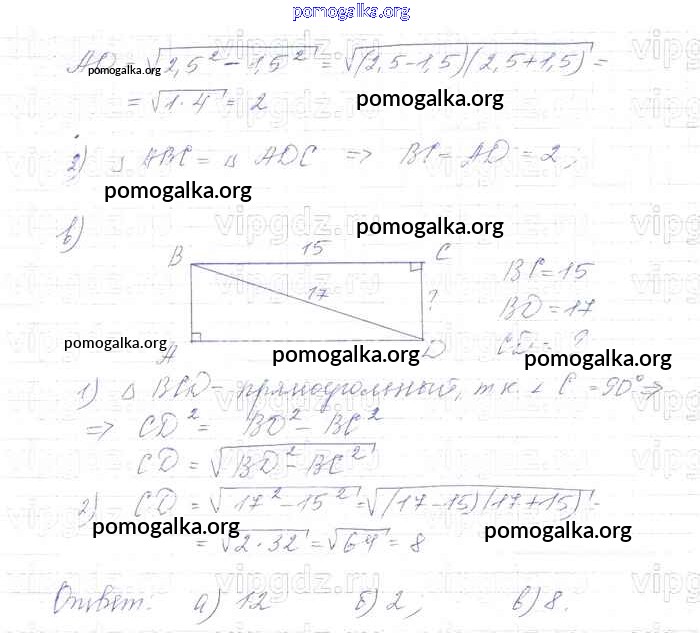 pomogalka.org
AD = √2,5² - 1,5² = √(2,5-1,5)(2,5+1,5) =
pomogalka.org
= √1·4 = 2
pomogalka.org
2) △ ABC = △ ADC => BC = AD = 2,
pomogalka.org
pomogalka.org
в)
B 15 C
17
?
A D
BC = 15
BD = 17
CD = ?
pomogalka.org
pomogalka.org
pomogalka.org
1) △ BCD - прямоугольный, т.к. ∠ C = 90° =>
=> CD² = BD² - BC²
CD = √BD² - BC²
2) CD = √17² - 15² = √(17-15)(17+15) =
pomogalka.org
pomogalka.org
= √2·32 = √64 = 8
Ответ: а) 12 б) 2, в) 8.
vipgdz.ru